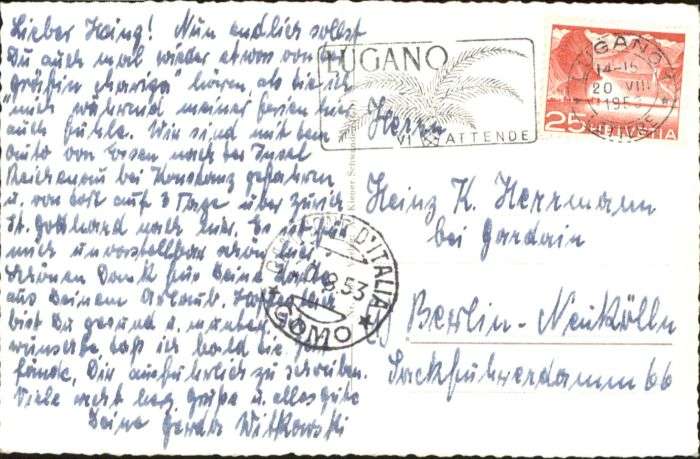 Lieber Heinz! Nun endlich sollst
Du auch mal wieder etwas von der
"Gräfin Mariza" hören, als die ich
mich während meiner Ferien hier
auch fühle. Wir sind mit dem
Auto von Essen nach der Insel
Reichenau bei Konstanz gefahren
u. von dort auf 3 Tage über Zürich
St. Gotthard nach hier. Es ist für
mich unvorstellbar schön hier.
Schönen Dank für Deine Karte
aus Deinem Urlaub. Hoffentlich
bist Du gesund u. munter.
wünschte daß ich bald die
fände, Dir ausführlich zu schreiben.
Viele recht herz. Grüße u. alles Gute
Deine Gerda Witkowski
LUGANO
VI ATTENDE
LUGANO 1
14-15
20 VIII
1953
25 HELVETIA
Herrn
Heinz K. Herrmann
bei Gardain
Berlin-Neukölln
Sackführerdamm 66
D'ITALIA
8.53
COMO